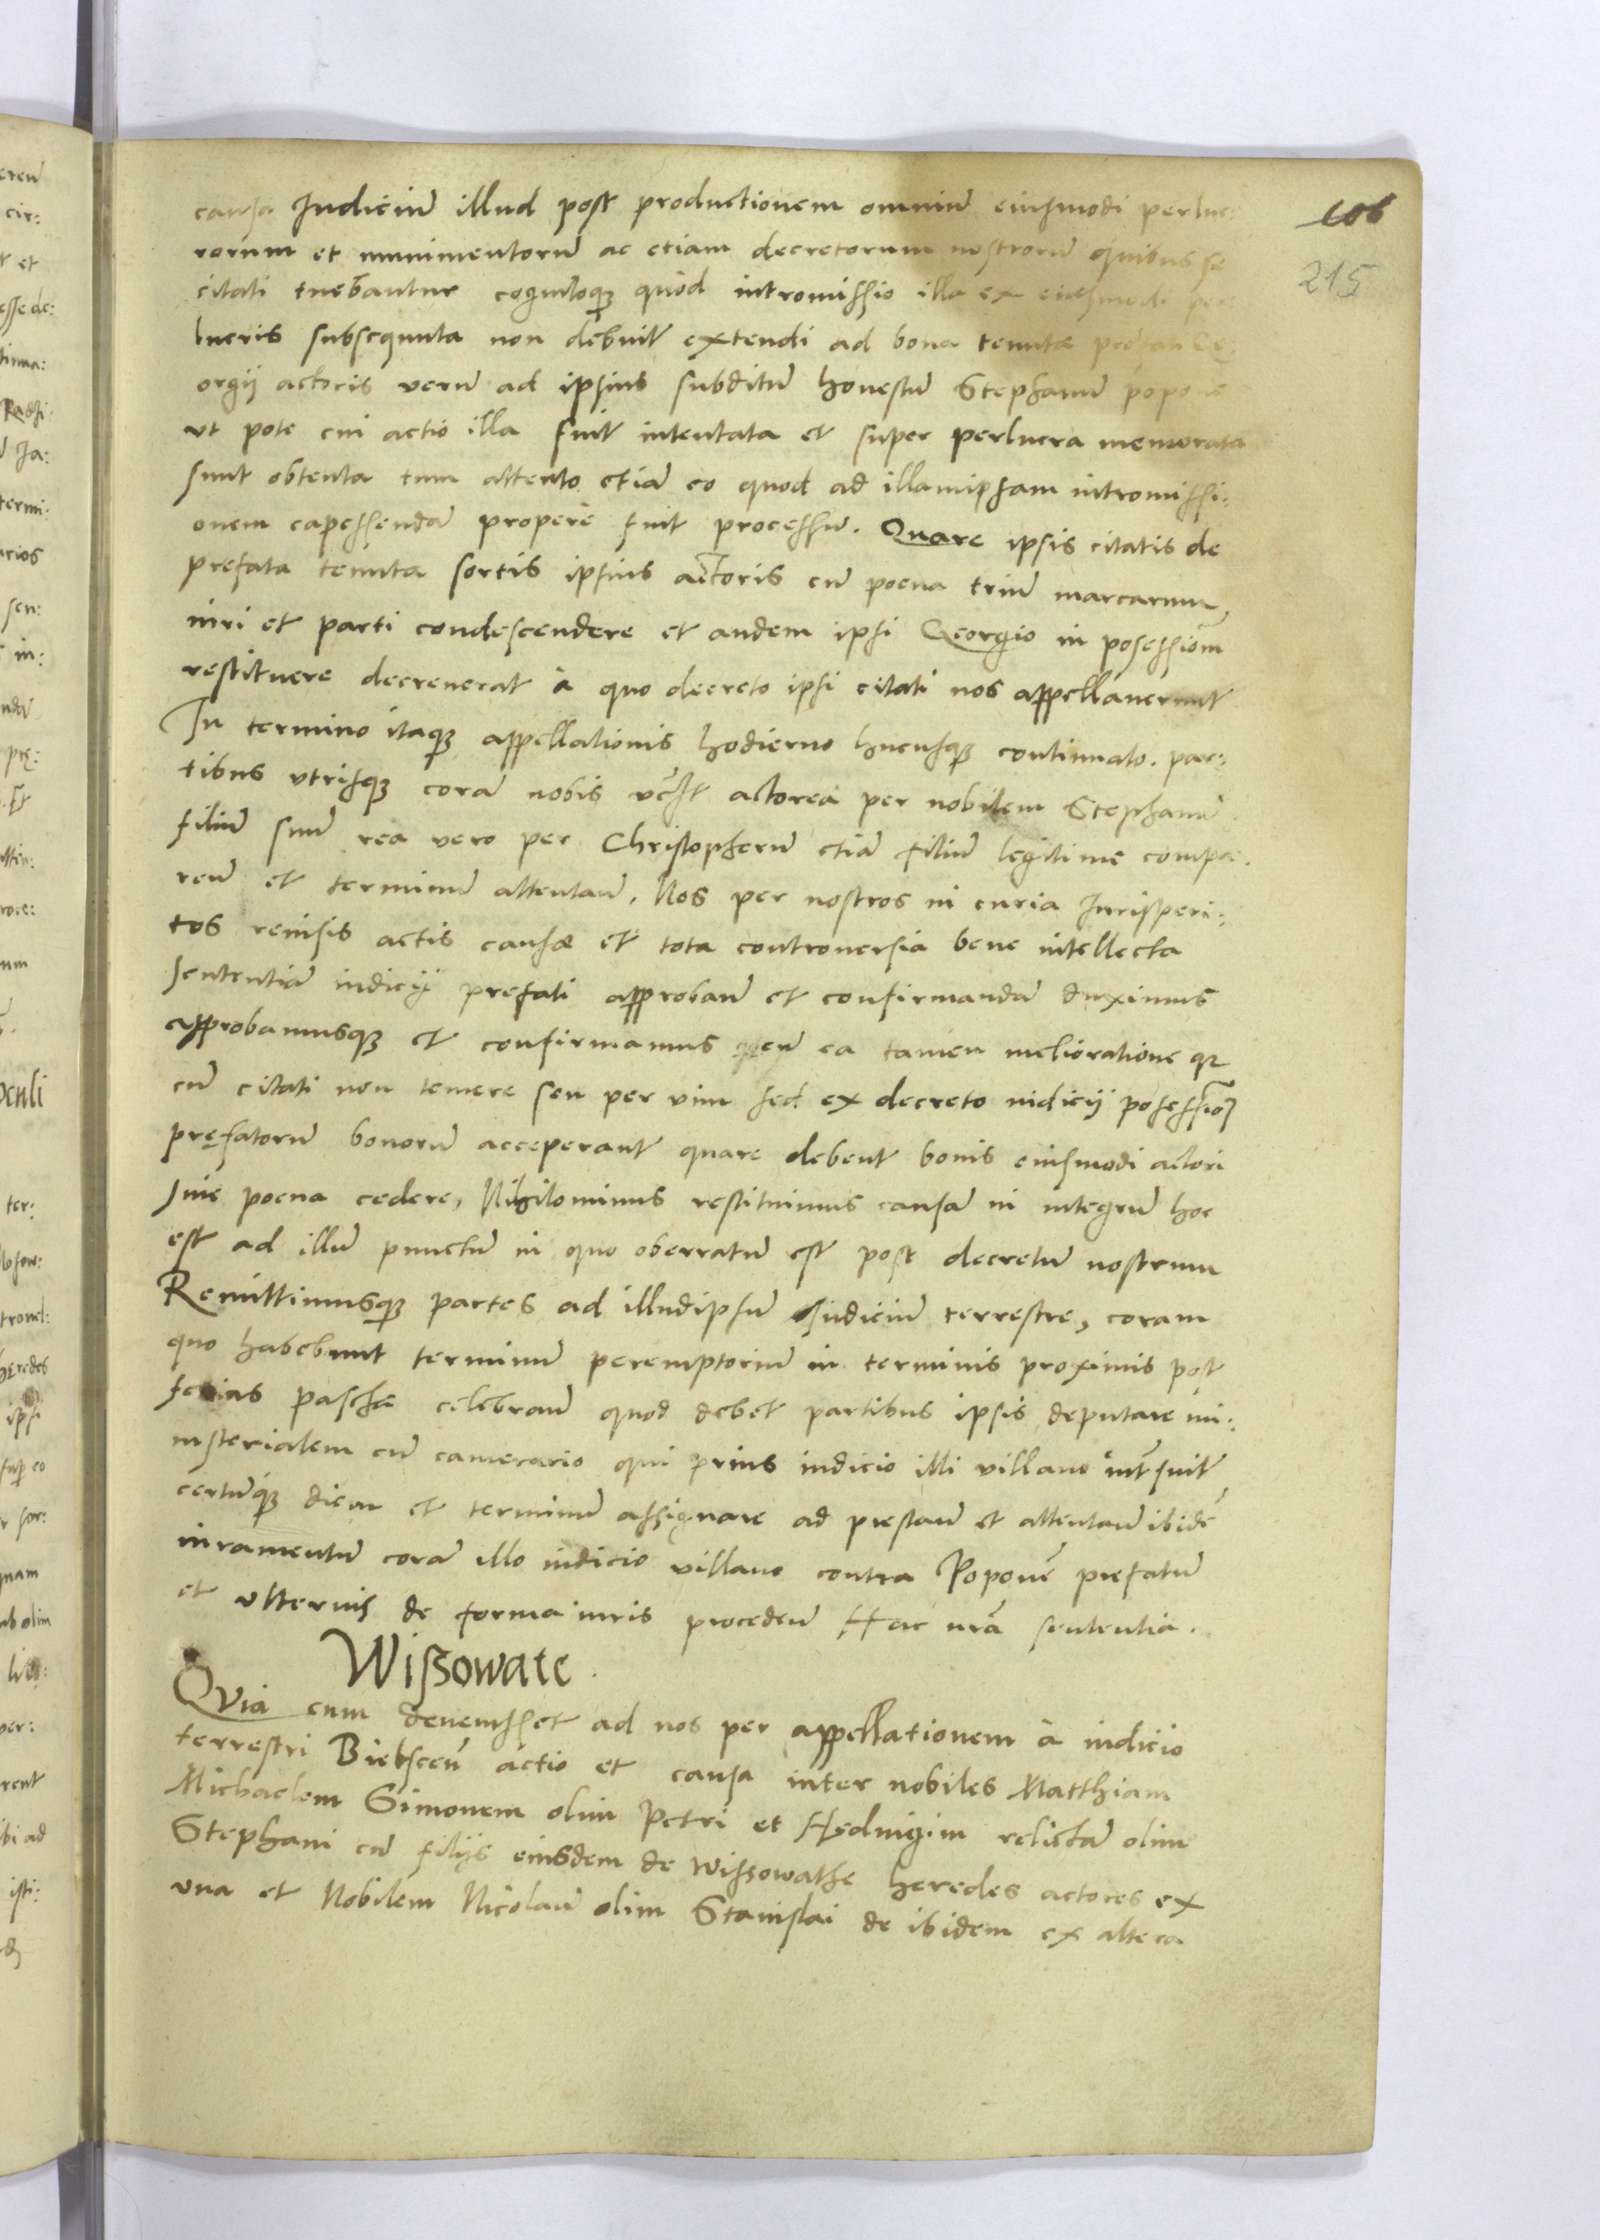 causa Judiciū illud post productionem omniū eiusmodi perluc:
rorum et munimentorū ac etiam decretorum nostrorū quibus se
citati tuebantur cognitoqȝ quod intromissio illa ex eiusmodi per
lucris subsequuta non debuit extendi ad bona tenutæ prefati Ge:
orgij actoris verū ad ipsius subditū honestū Stephanū popone
ut pote cui actio illa fuit intentata et super perlucra memorata
sunt obtenta tum attento etiā eo quod ad illamipsam intromissi:
onem capessendā propere fuit processū. Quare ipsis citatis de
prefata tenuta sortis ipsius actoris cū poena triū marcarum,
iuri et parti condescendere et eandem ipsi Georgio in posessionē
restituere decreverat à quo decreto ipsi citati nos appellaverunt
In termino itaqȝ appellationis hodierno hucusqȝ continuato. par:
tibus utrisqȝ corā nobis vcȝt actorea per nobilem Stephanū
filiū suū rea vero per Christopherū etiā filiū legitime compa:
ren̄ et terminū attentan̄. Nos per nostros in curia Jurisperi:
tos revisis actis causæ et tota controversia bene intellecta
sententiā iudicij prefati approban̄ et confirmandā duximus
approbamusqȝ et confirmamus cū ea tamen melioratione qȝ
cū citati non temere seu per vim sed ex decreto iudicij posessionē
pręfatorū bonorū acceperant quare debent bonis eiusmodi actori
sine poena cedere, Nihilominus restituimus causā in integrū hoc
est ad illū punctū in quo oberratū est post decretū nostrum
Remittimusqȝ partes ad illudipsū Judiciū terrestre, coram
quo habebunt terminū peremptoriū in terminis proximis post
ferias paschæ celebran̄ quod debet partibus ipsis deputare mi:
nisterialem cū camerario qui prius iudicio illi villano interfuit
certūqȝ diem et terminū assignare ad prestan̄ et attentan̄ ibidē
iuramentū corā illo iudicio villano contra Poponē prefatū
et ulterius de forma iuris proceden̄ Hac nrā sententia.
Wissowate.
Quia cum devenisset ad nos per appellationem à iudicio
terrestri Biebscen̄ actio et causa inter nobiles Matthiam
Michaelem Simonem olim Petri et Hedvigim relictā olim
Stephani cū filijs eiusdem de Wissowathe heredes actores ex
una et Nobilem Nicolaū olim Stanislai de ibidem ex altera
106
215